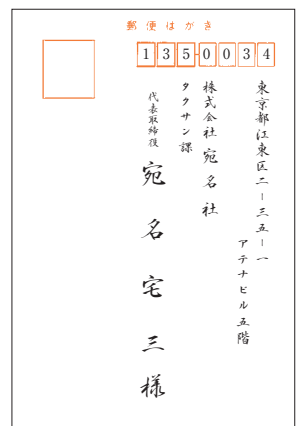 郵便はがき
135-0034
東京都江東区二ー三五ー一
アテナビル五階
株式会社宛名社
タクサン課
代表取締役
宛名宅三様